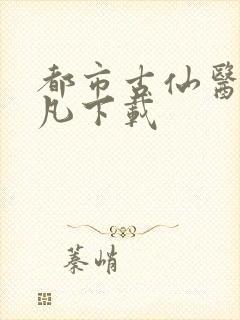 都市古仙醫
凡下載
蓁峭